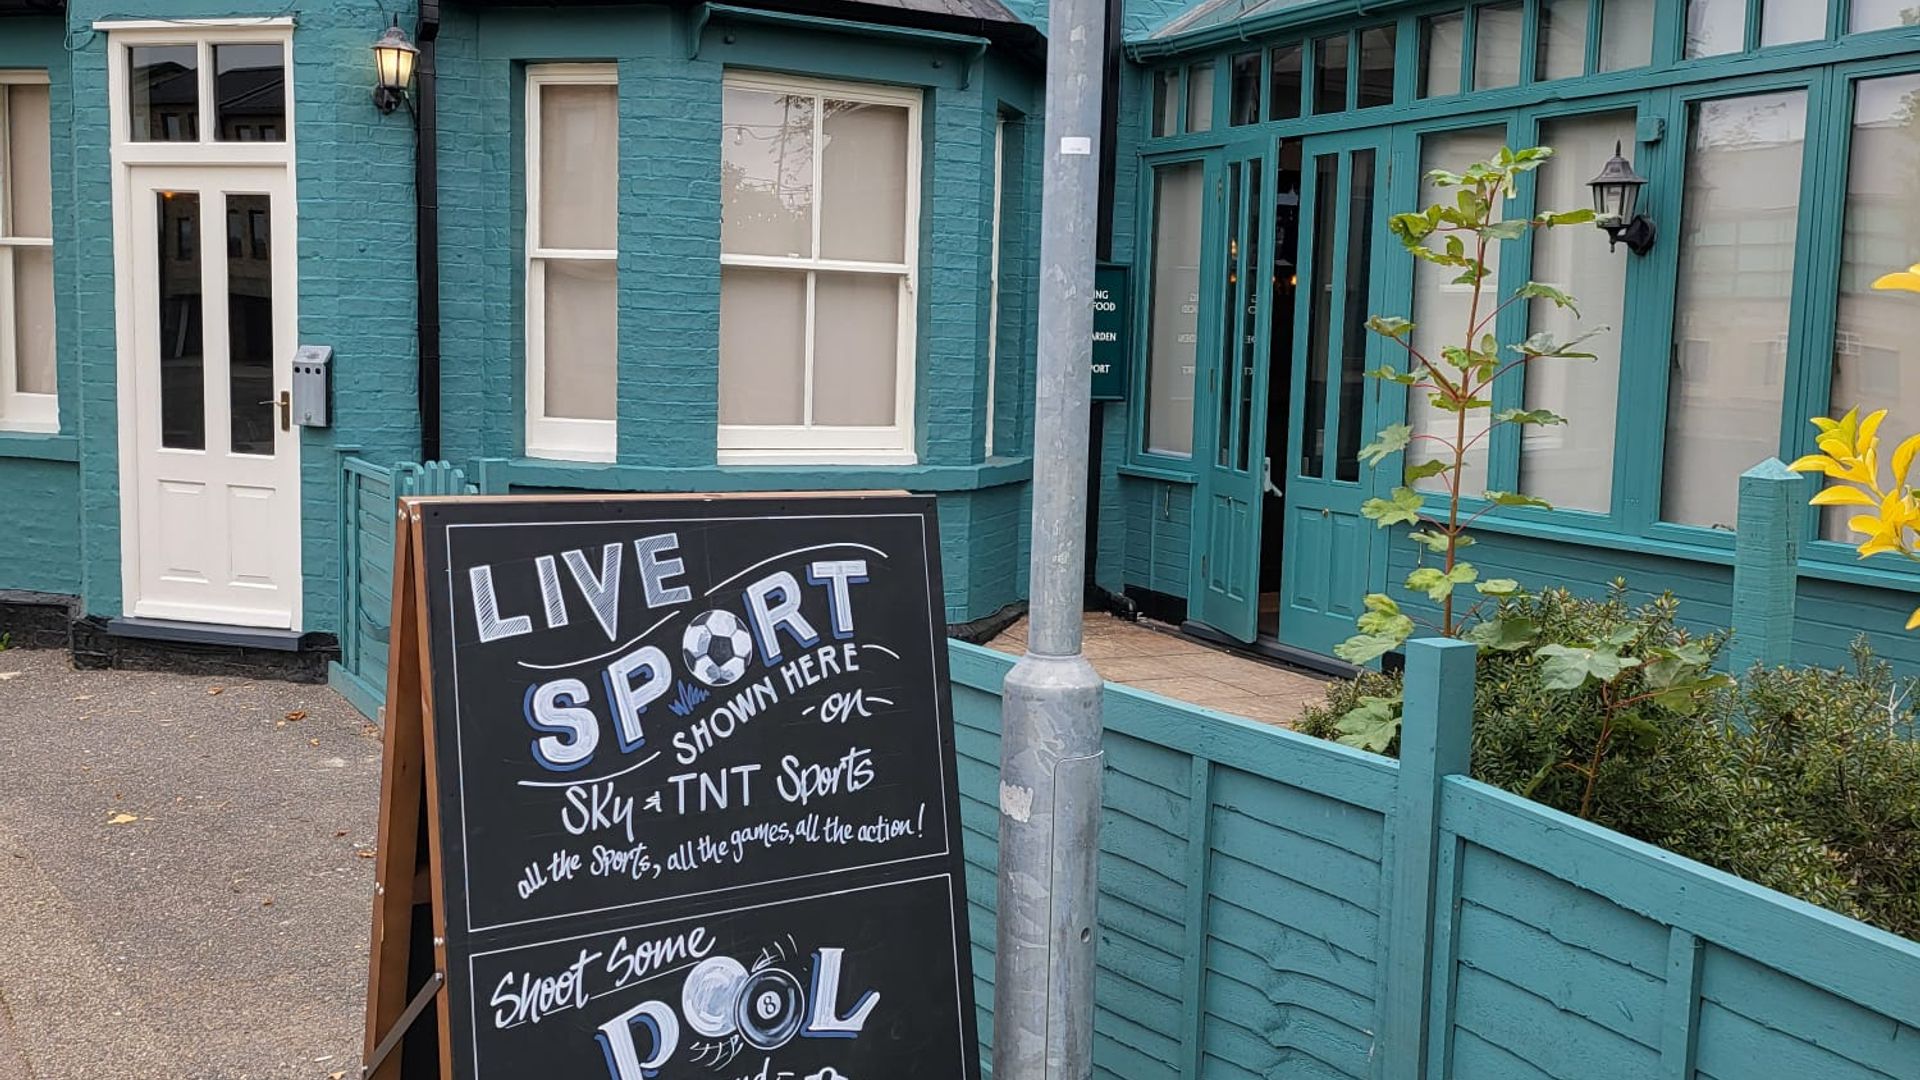 LIVE
SPORT
SHOWN HERE
-on-
Sky & TNT Sports
all the Sports, all the games, all the action!
Shoot Some
POOL
8
FOOD